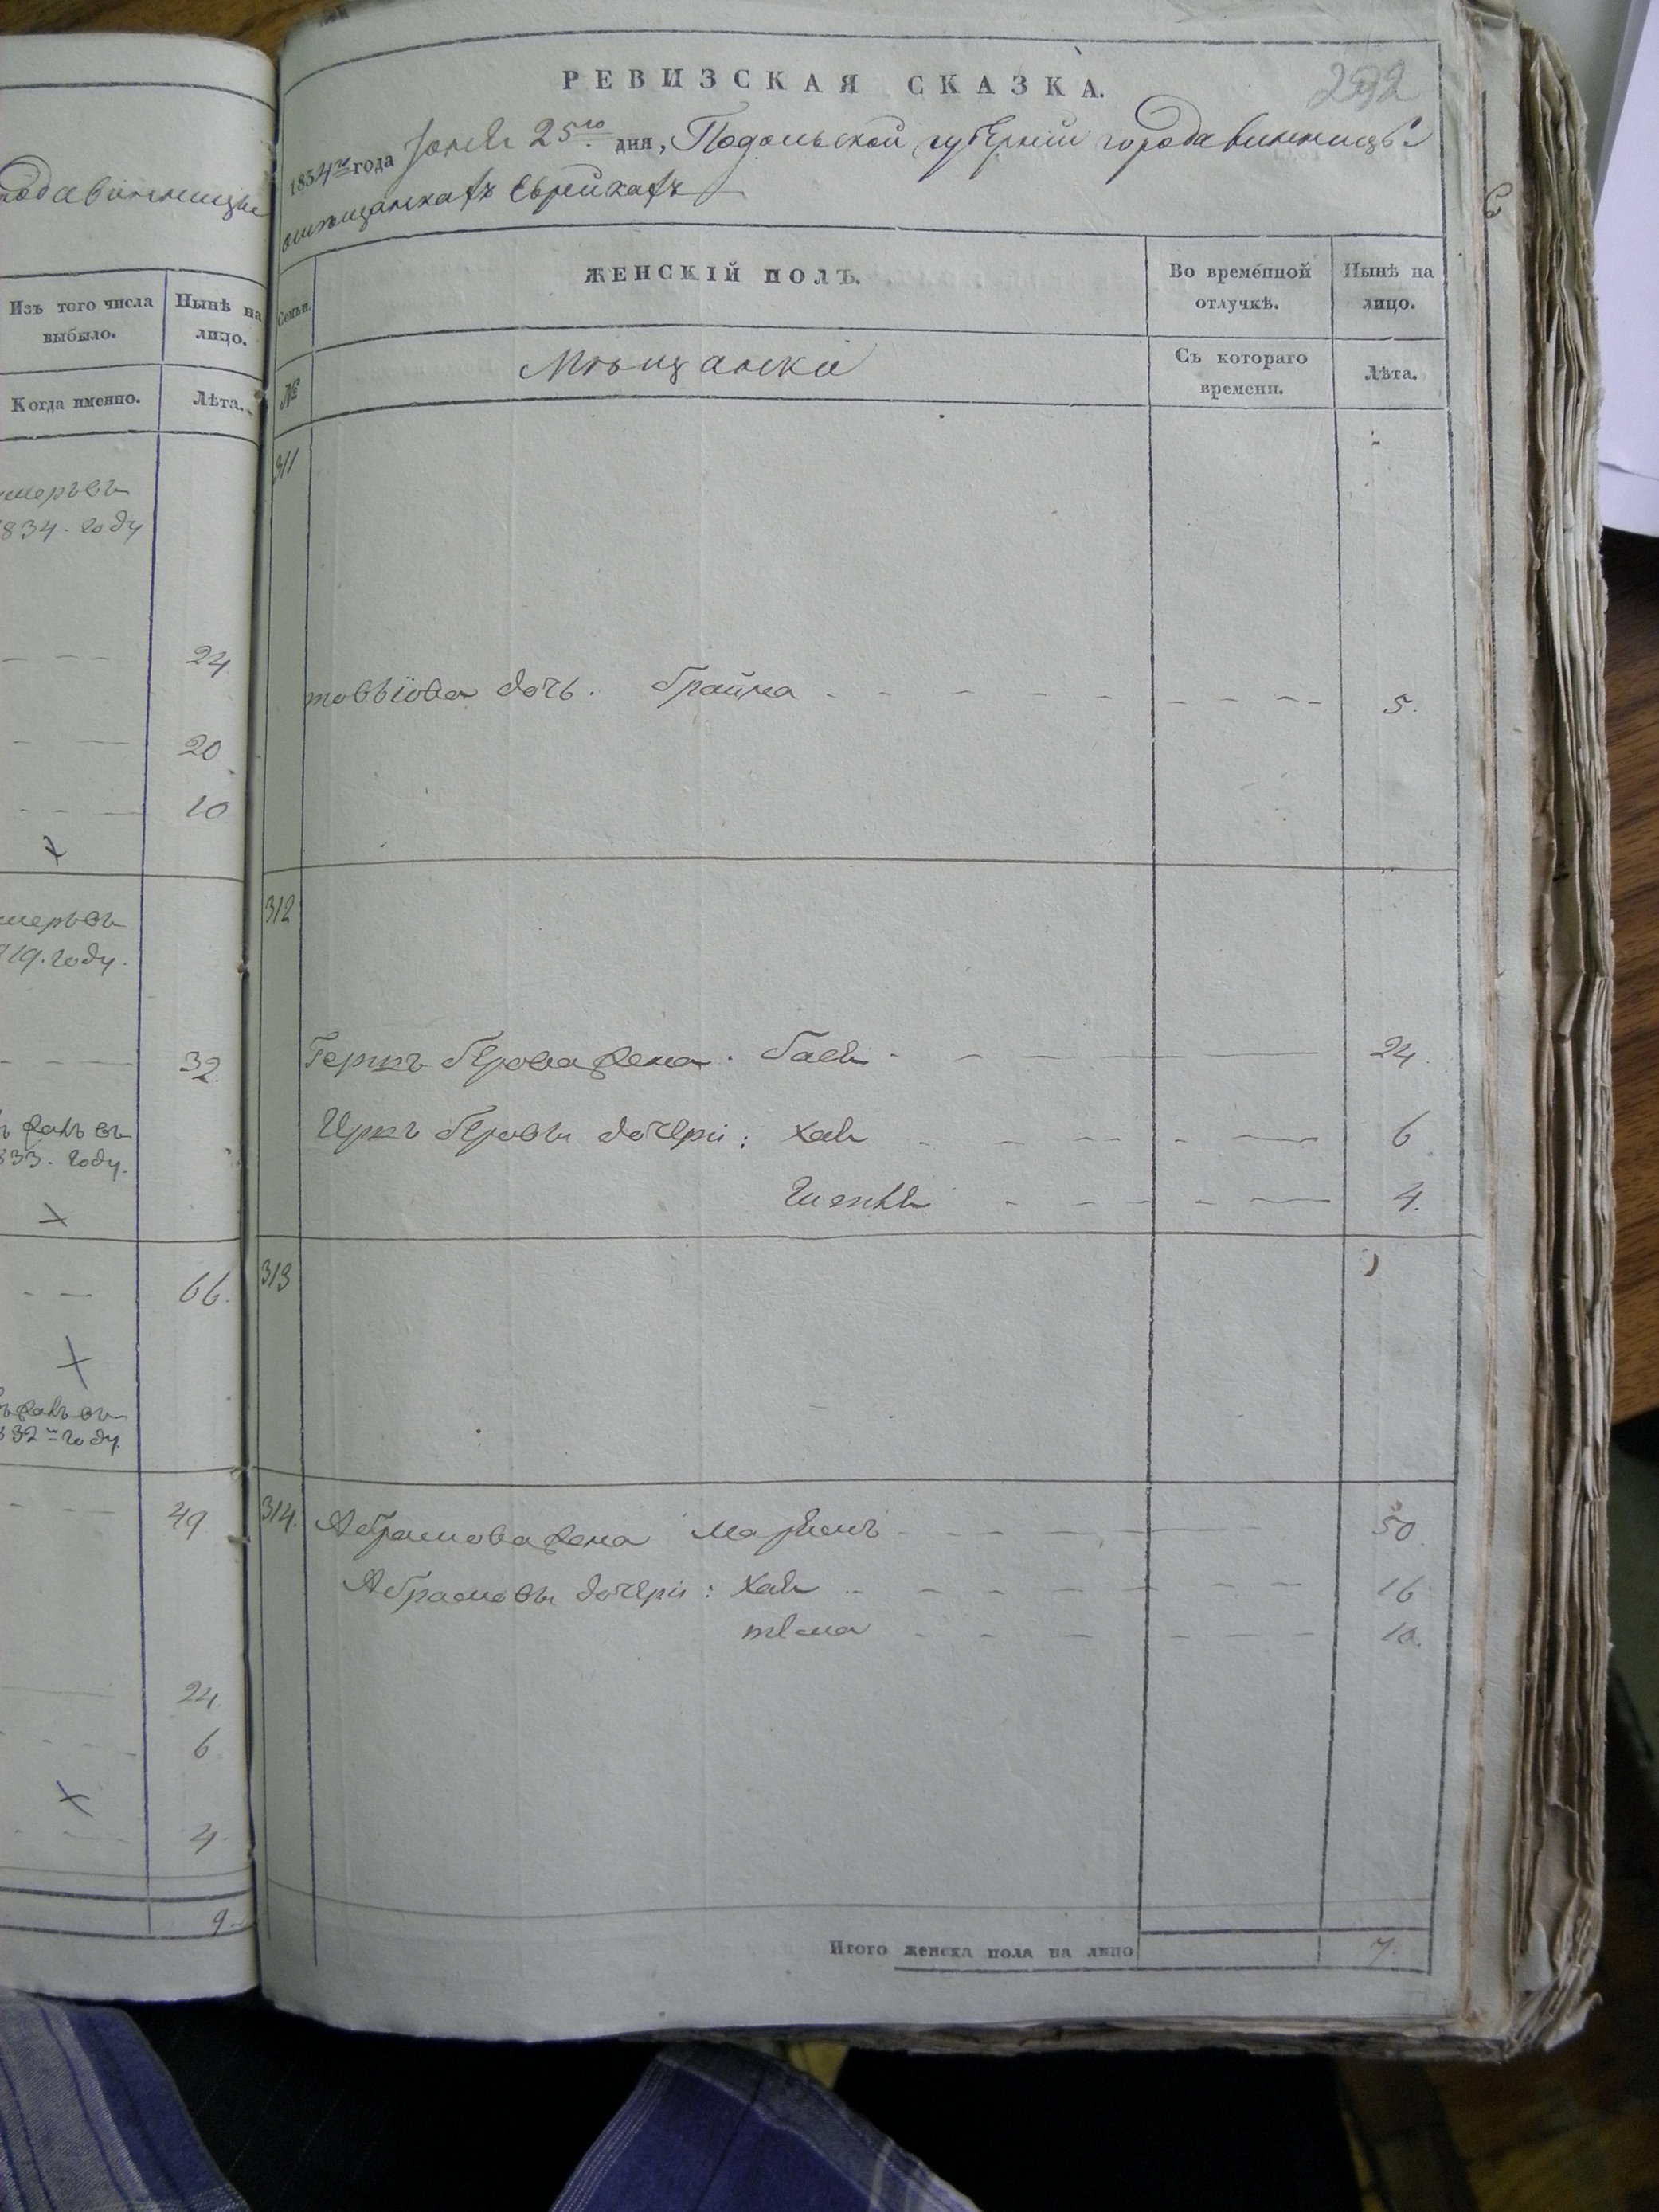 рода Винницы
Изъ того числа выбыло.
Нынѣ на лицо.
Когда именно.
Лѣта.
умеръ въ
1834. году
24
20
10
умеръ въ
819. году.
32
въ
833. году.
66.
въ
832 году.
49
24
6
4
9
292
РЕВИЗСКАЯ СКАЗКА.
1834 года 25го дня, Подольской губерніи города Винницы
о мѣщанкахъ Еврейкахъ
Семьи.
ЖЕНСКІЙ ПОЛЪ.
Во временной отлучкѣ.
Нынѣ на лицо.
№
Мѣщанки
Съ котораго времени.
Лѣта.
311
дочь. Брайна 5.
312
Гершъ Берова жена. Бася 24.
Беровы дочери: Хая 6
4.
313
314. Абрамова жена 50
Абрамовы дочери: Хая 16
10.
Итого женска пола на лицо 7.